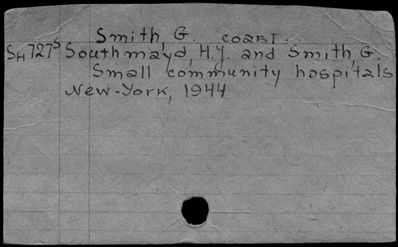 Smith, G. coaBT.
SH727S Southmayd, H.J. and Smith, G.
Small community hospitals
New-York, 1944